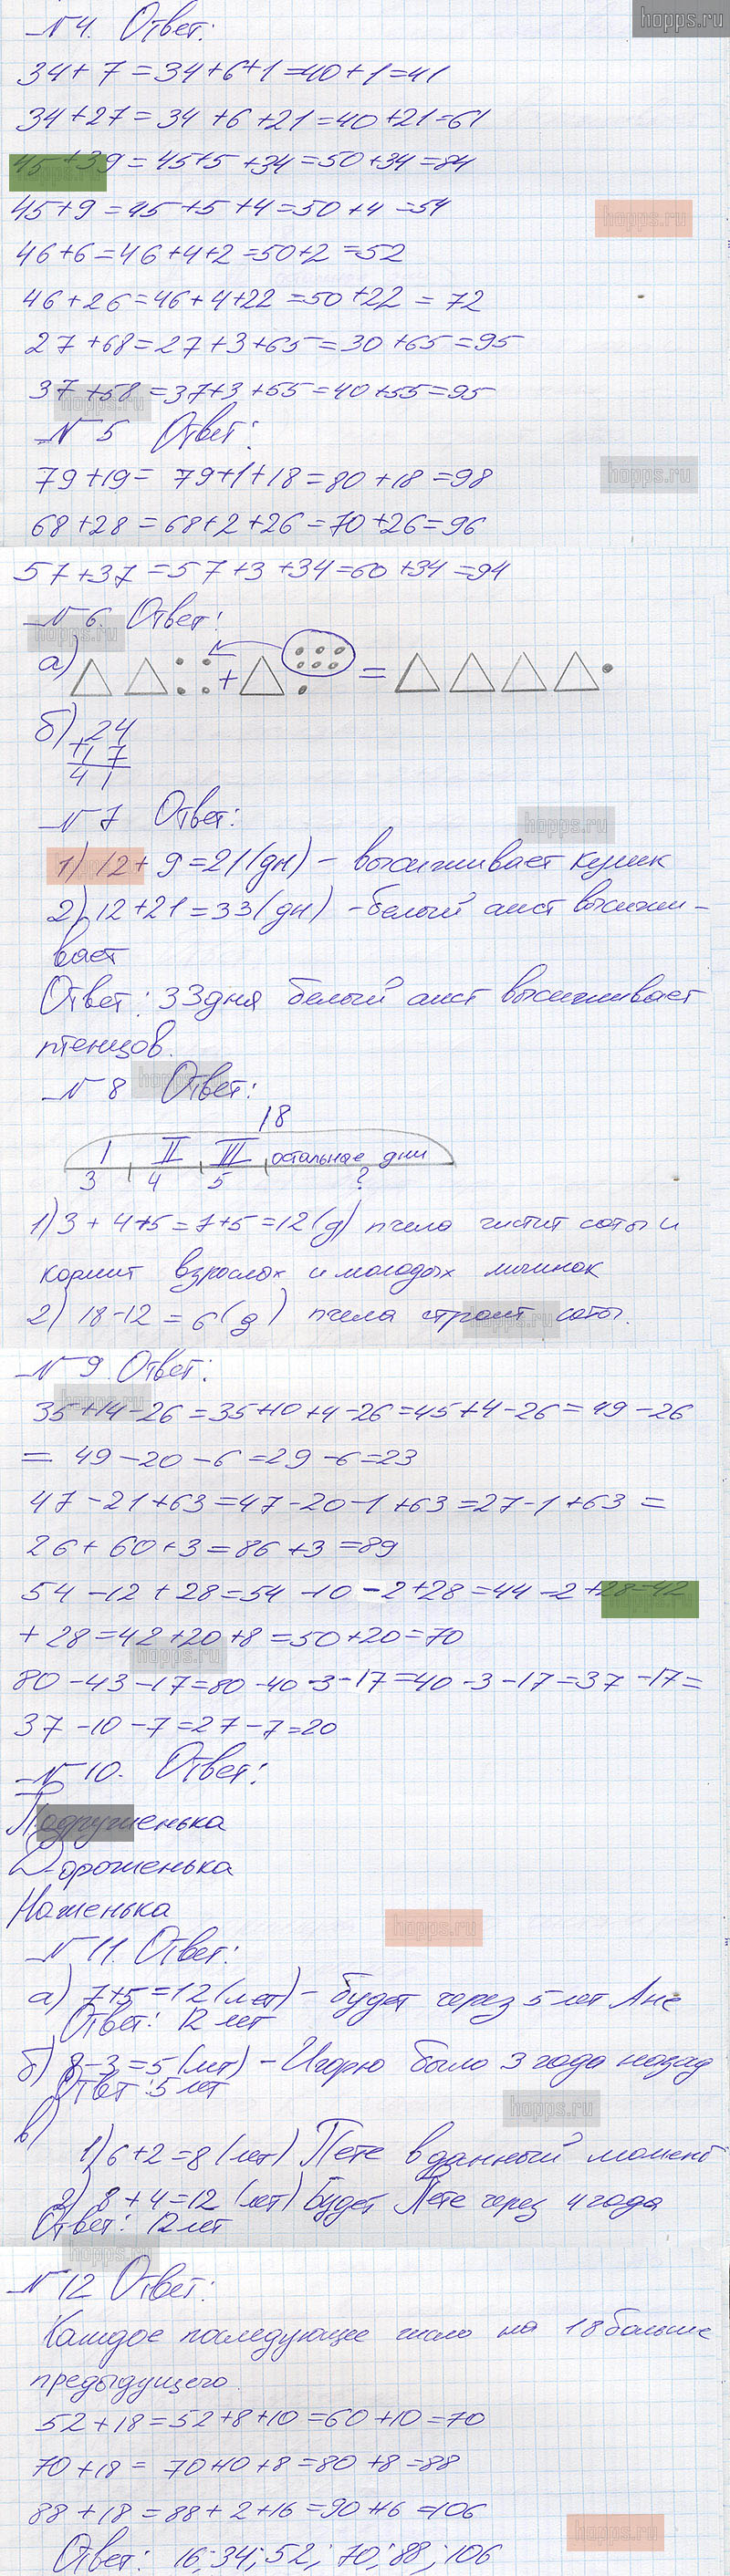 hopps.ru
№ 4. Ответ:
34 + 7 = 34+6+1=40+1=41
34 +27 = 34 +6 +21=40+21=61
45 +39 = 45+5 +34 =50+34 =84
45+9 = 45 +5 +4=50 +4 =54
hopps.ru
46+6=46+4+2 =50+2 =52
46+26=46+4+22 =50+22 = 72
27 +68=27+3+65=30 +65=95
37 +58 =37+3 +55=40+55=95
hopps.ru
№ 5 Ответ:
79 +19= 79+1+18=80 +18 =98
hopps.ru
68+28 = 68+2 +26=70 +26=96
57+37 =57+3 +34=60 +34 =94
№ 6. Ответ:
hopps.ru
а) + =
б) 24
+17
41
№ 7 Ответ:
hopps.ru
1) 12+ 9=21(дн) - высиживает кулик
2) 12+21=33(дн) -белый аист высижи-
вает
Ответ: 33дня белый аист высиживает
птенцов.
№ 8 Ответ:
hopps.ru
18
I II III остальные дни
3 4 5 ?
1) 3 + 4+5=7+5=12(д) пчела чистит соты и
кормит взрослых и молодых личинок
2) 18-12 = 6(д) пчела строит соты.
hopps.ru
№ 9. Ответ:
hopps.ru
35+14-26=35+10+4-26=45+4-26=49-26
= 49-20 -6=29-6=23
47 -21+63=47-20-1 +63 =27-1 +63 =
26+ 60+3=86 +3 =89
54 -12 + 28=54 -10 -2+28=44-2 +28=42
+ 28=42+20 +8=50+20=70
hopps.ru
80 -43 -17=80 -40 -3-17=40 -3 -17=37 -17=
37 -10 -7=27-7=20
№ 10. Ответ:
Подруженька
Дороженька
Ноженька
hopps.ru
№ 11. Ответ:
а) 7+5=12(лет) - будет через 5 лет Ане
Ответ: 12 лет
б) 8-3=5(лет) - Игорю было 3 года назад
Ответ: 5 лет
hopps.ru
в)
1) 6+2=8(лет) Пете в данный момент
2) 8+4=12(лет) Будет Пете через 4 года
Ответ: 12 лет
hopps.ru
№ 12 Ответ:
Каждое последующее число на 18 больше
предыдущего.
52+18=52+8+10=60+10=70
70+18= 70+10 +8=80 +8=88
88 +18 =88+ 2+16=90+16 =106
hopps.ru
Ответ: 16; 34; 52; 70; 88; 106